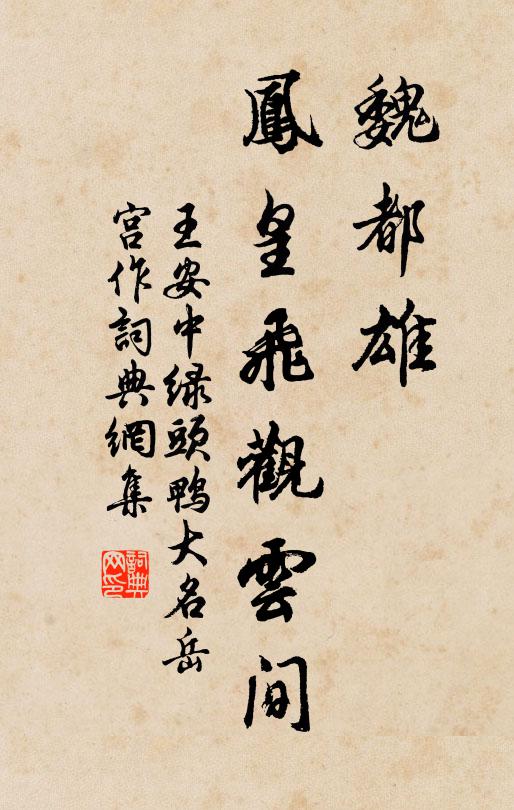 魏都雄
鳳皇飛觀雲間
王安中緑頭鴨大名岳
宫作詞典網集
詞典
网印